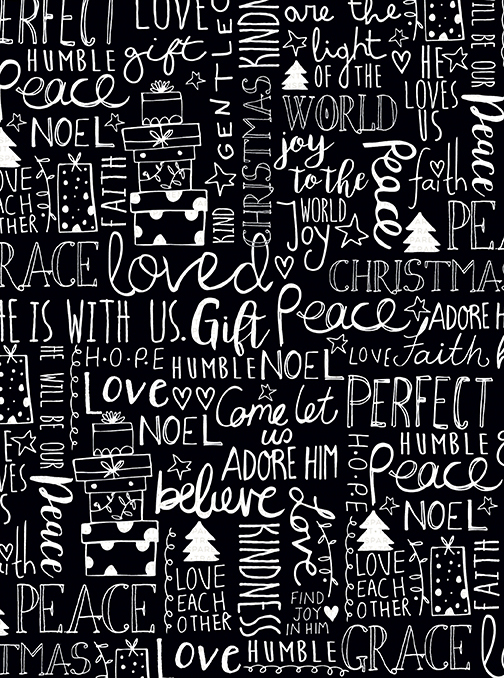 PERFECT LOVE
HUMBLE gift
Peace
NOEL
GENTLE
KINDNESS
are the
light
OF THE
WORLD
HE
LOVES
US
WILL BE OUR
Peace
joy
to the
WORLD
Joy
Peace
faith
LOVE
EACH
OTHER
FAITH
KIND
CHRISTMAS
PE
GRACE loved
CHRISTMAS
HE IS WITH US. Gift Peace
ADORE H
HE WILL BE OUR
Peace
H·O·P·E
HUMBLE NOEL
LOVE Faith
LOVE
NOEL
Come let
us
ADORE HIM
PERFECT
HUMBLE
H·O·P·E
Peace
NOEL
believe
KINDNESS
Love
US
th
LOVE
EACH
OTHER
FIND
JOY
IN HIM
LOVE
EACH
OTHER
FAITH
PEACE
TMAS
Love HUMBLE GRACE lo